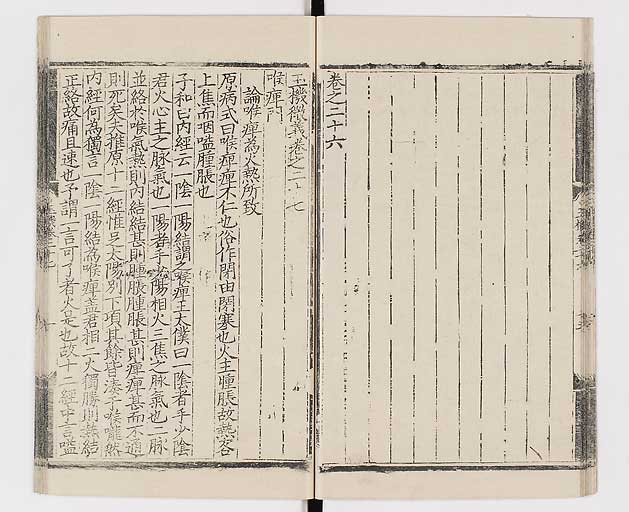 卷之二十六
玉機微義卷之二十七
喉痺門
論喉痺為火熱所致
原病式曰喉痺痺不仁也俗作閉由閉塞也火主腫脹故熱客
上焦而咽嗌腫脹也
子和曰內經云一陰一陽結謂之喉痺王太僕曰一陰者手少陰
君火心主之脉氣也一陽者手少陽相火三焦之脉氣也二脉
並絡於喉氣熱則內結結甚則腫脹腫脹甚則痺痺甚而不通
則死矣夫推原十二經惟足太陽別下項其餘皆湊于喉嚨然
內經何為獨言一陰一陽結為喉痺盖君相二火獨勝則熱結
正絡故痛且速也予謂一言可了者火是也故十二經中言嗌